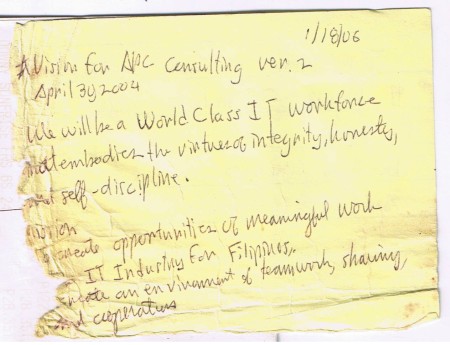 1/18/06
* Vision for APC Consulting ver. 2
April 30, 2004
We will be a World Class IT workforce
that embodies the virtues of integrity, honesty,
and self-discipline.
create opportunities of meaningful work
IT Industry For Filipinos.
create an environment of teamwork, sharing,
and cooperation